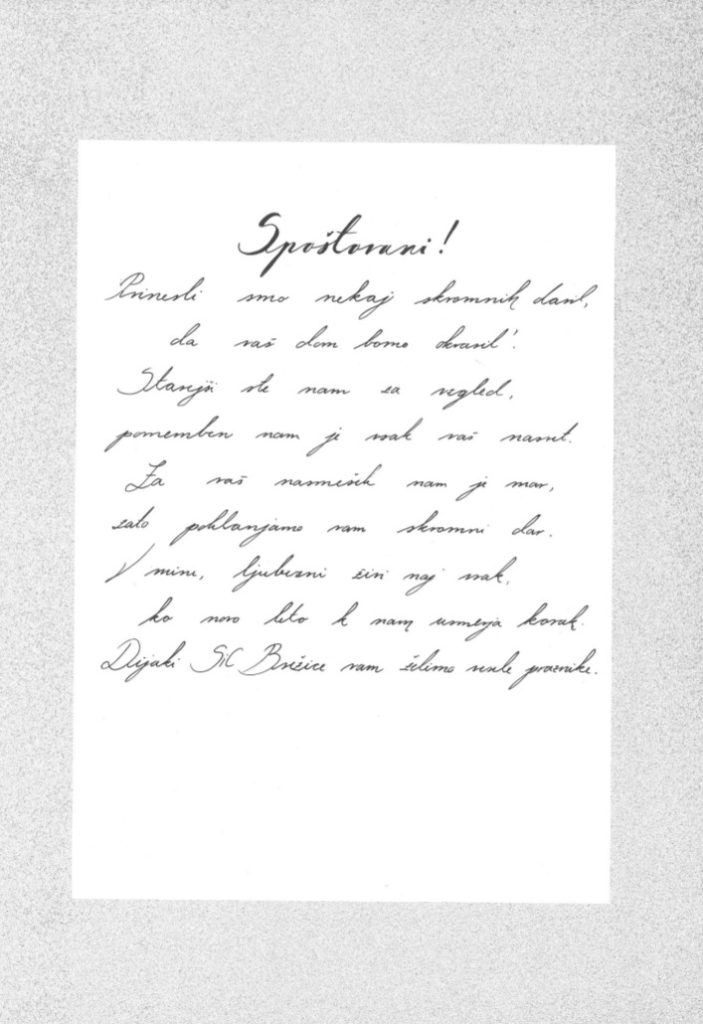 Spoštovani!
Prinesli smo nekaj skromnih daril,
da vaš dom bomo okrasil'.
Starejši ste nam za vzgled,
pomemben nam je vsak vaš nasvet.
Za vaš nasmešek nam je mar,
zato poklanjamo vam skromni dar.
V miru, ljubezni živi naj vsak,
ko novo leto k nam usmerja korak.
Dijaki SIC Brežice vam želimo vesele praznike.